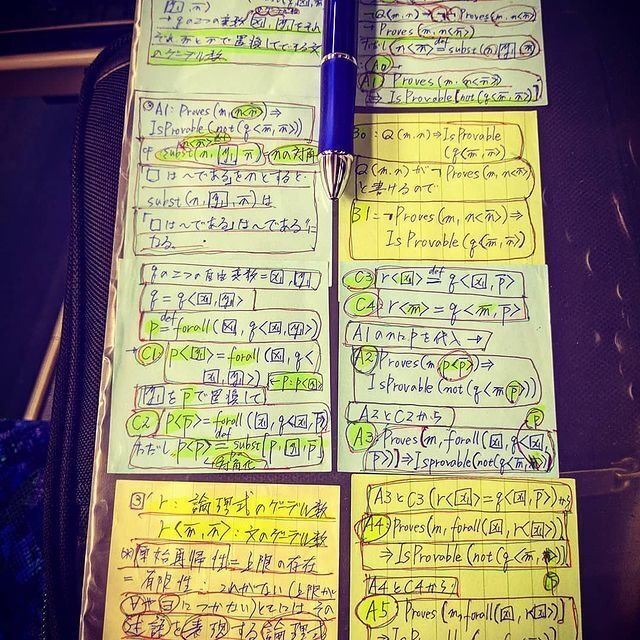 →qの2つの変数[x₁],[y₁]をそれ
ぞれmとnで置換してできる文
のゲーデル数
¬Q(m,n)
Proves(m,n<n̄>)
→Proves(m,n<n̄>)
ただし(n<n̄> =def subst(n,[y₁],n̄)
A0 →
A1 Proves(m,n<n̄>)
⇒IsProvable(not(q<m̄,n̄>))
A1: Proves(m,n<n̄>)⇒
IsProvable(not(q<m̄,n̄>))
subst(n,[y₁],n̄)=nの対角
「□は〜である」をnとすると、
subst(n,[y₁],n̄)は
「「□は〜である」は〜である」に
なる
B0: Q(m,n)⇒IsProvable
(q<m̄,n̄>)
Q(m,n)が¬Proves(m,n<n̄>)
と書けるので
B1=¬Proves(m,n<n̄>)⇒
IsProvable(q<m̄,n̄>)
qの二つの自由変数=[x₁],[y₁]
q=q<[x₁],[y₁]>
p =def forall([x₁],q<[x₁],[y₁]>)
→C1 p<[y₁]>=forall([x₁],q<
[x₁],[y₁]>)
[y₁]をp̄で置換して
C2 p<p̄>=forall([x₁],q<[x₁],p̄>)
ただしp<p̄> =def subst(p,[y₁],p̄)
対角化
C3 r<[x₁]> =def q<[x₁],p̄>
C4: r<m̄>=q<m̄,p̄>
A1のnにpを代入→
A2 Proves(m,p<p̄>)⇒
IsProvable(not(q<m̄,p̄>))
A2とC2から
A3: Proves(m,forall([x₁],q<[x₁],
p̄>))⇒IsProvable(not(q<m̄,p̄>))
③' r: 論理式のゲーデル数
r<m̄,n̄>: 文のゲーデル数
原始再帰性=上限の存在
=有限性:これがない(上限が
につかない)とこにはその
述語を表現する論理式
A3とC3(r<[x₁]>=q<[x₁],p̄>)から
A4: Proves(m,forall([x₁],r<[x₁]>))
⇒IsProvable(not(q<m̄,p̄>))
A4とC4から:
A5 Proves(m,forall([x₁],r<[x₁]>))